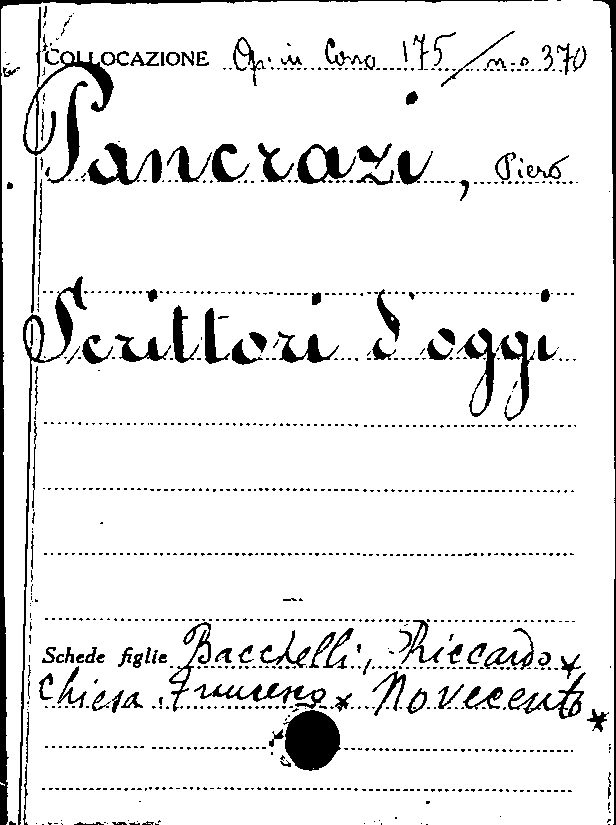 COLLOCAZIONE Op. in Cons 175/n.o 370
Pancrazi, Piero
Scrittori d'oggi
Schede figlie Bacchelli, Riccardo x
Chiesa, Francesco x Novecento x